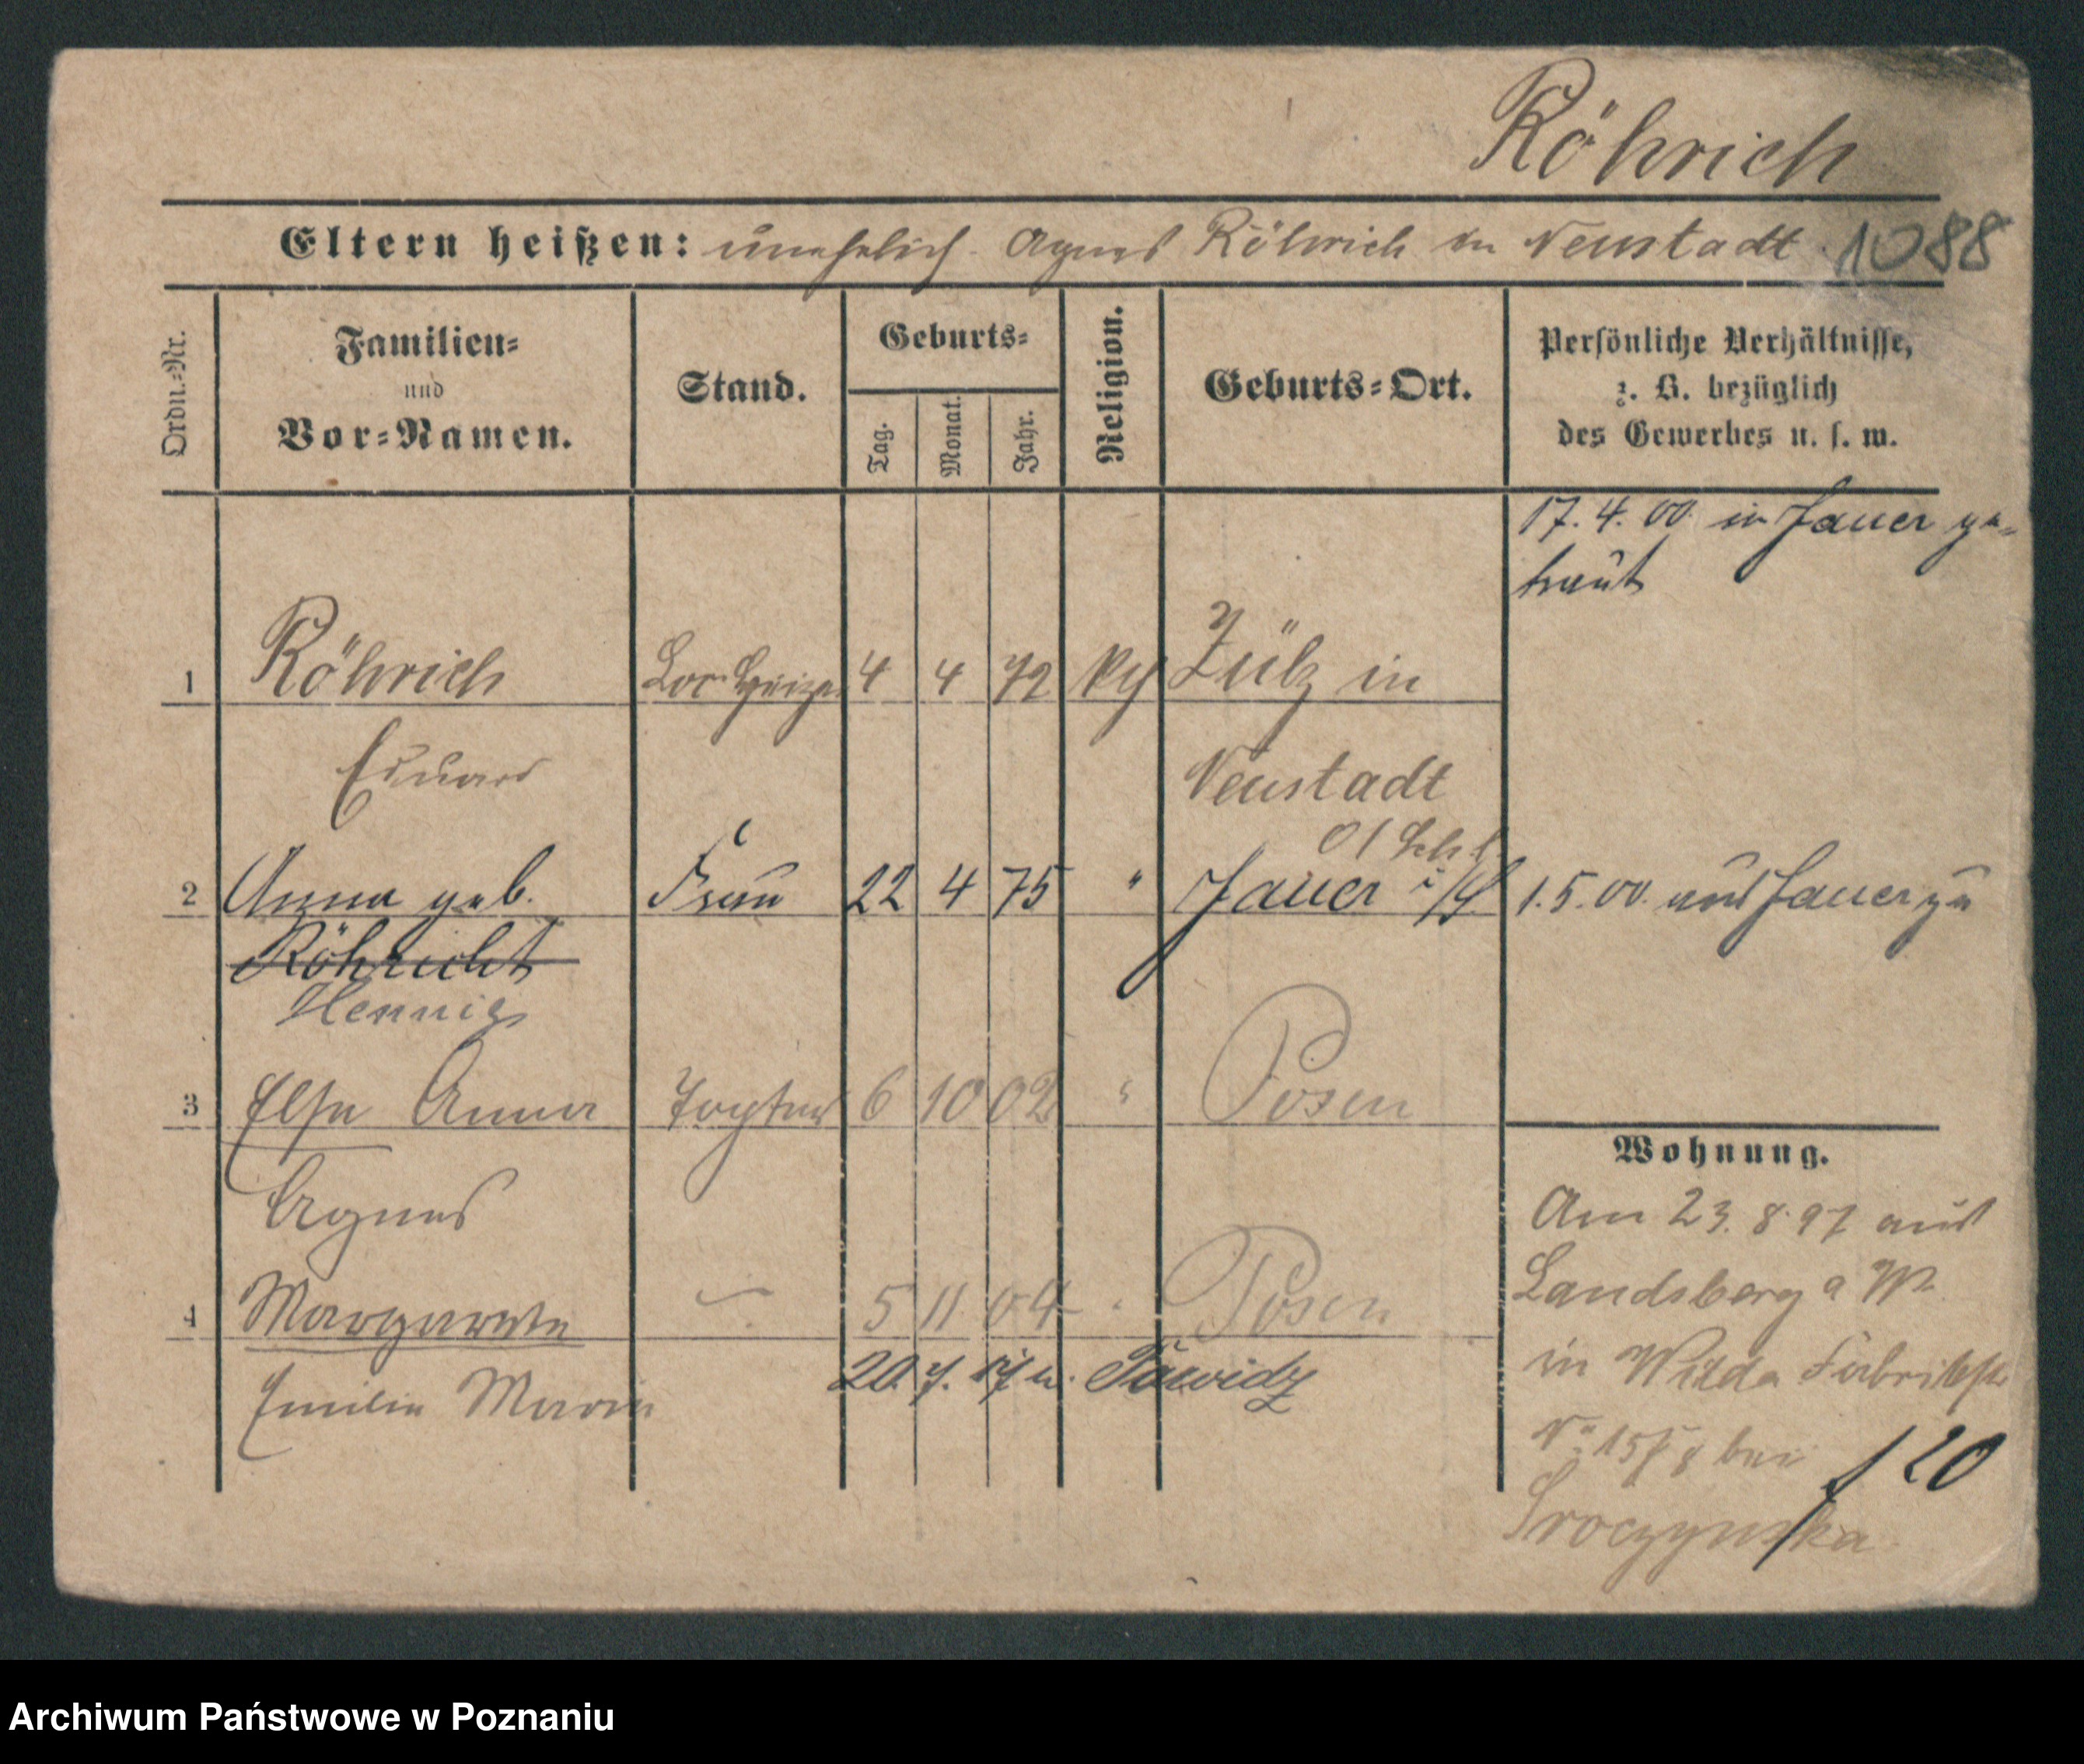 Röhrich
Eltern heißen: unehelich. Agnes Röhrich in Neustadt
1088
Ordn.-Nr.
Familien-
und
Vor-Namen.
Stand.
Geburts-
Tag.
Monat.
Jahr.
Religion.
Geburts-Ort.
Persönliche Verhältnisse,
z. B. bezüglich
des Gewerbes u. s. w.
17. 4. 00. in Jauer ge-
traut
1 Röhrich Loc. Heizer 4 4 72 Zülz in
Eduard Neustadt
O/Schl.
2 Anna geb. Frau 22 4 75 " Jauer i/S 1. 5. 00. aus Jauer zu
Röhricht
Hennig
3 Else Anna Tochter 6 10 02 " Posen
Agnes
4 Margarete 5 11 04 Posen
Emilie Marie
20. 7. 17 n.
Wohnung.
Am 23. 8. 97 aus
Landsberg a W.
in Wilda Fabrikstr
No bei
120
Sroczynska